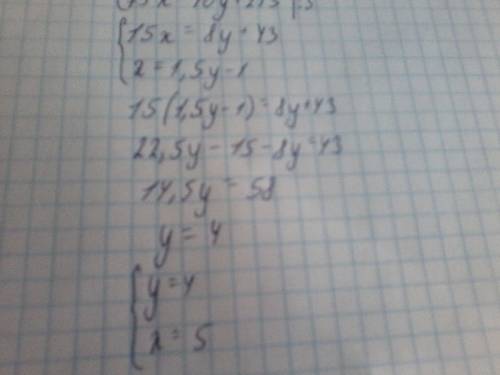 15x = 8y + 43
x = 1,5y - 1
15(1,5y - 1) = 8y + 43
22,5y - 15 - 8y = 43
14,5y = 58
y = 4
y = 4
x = 5